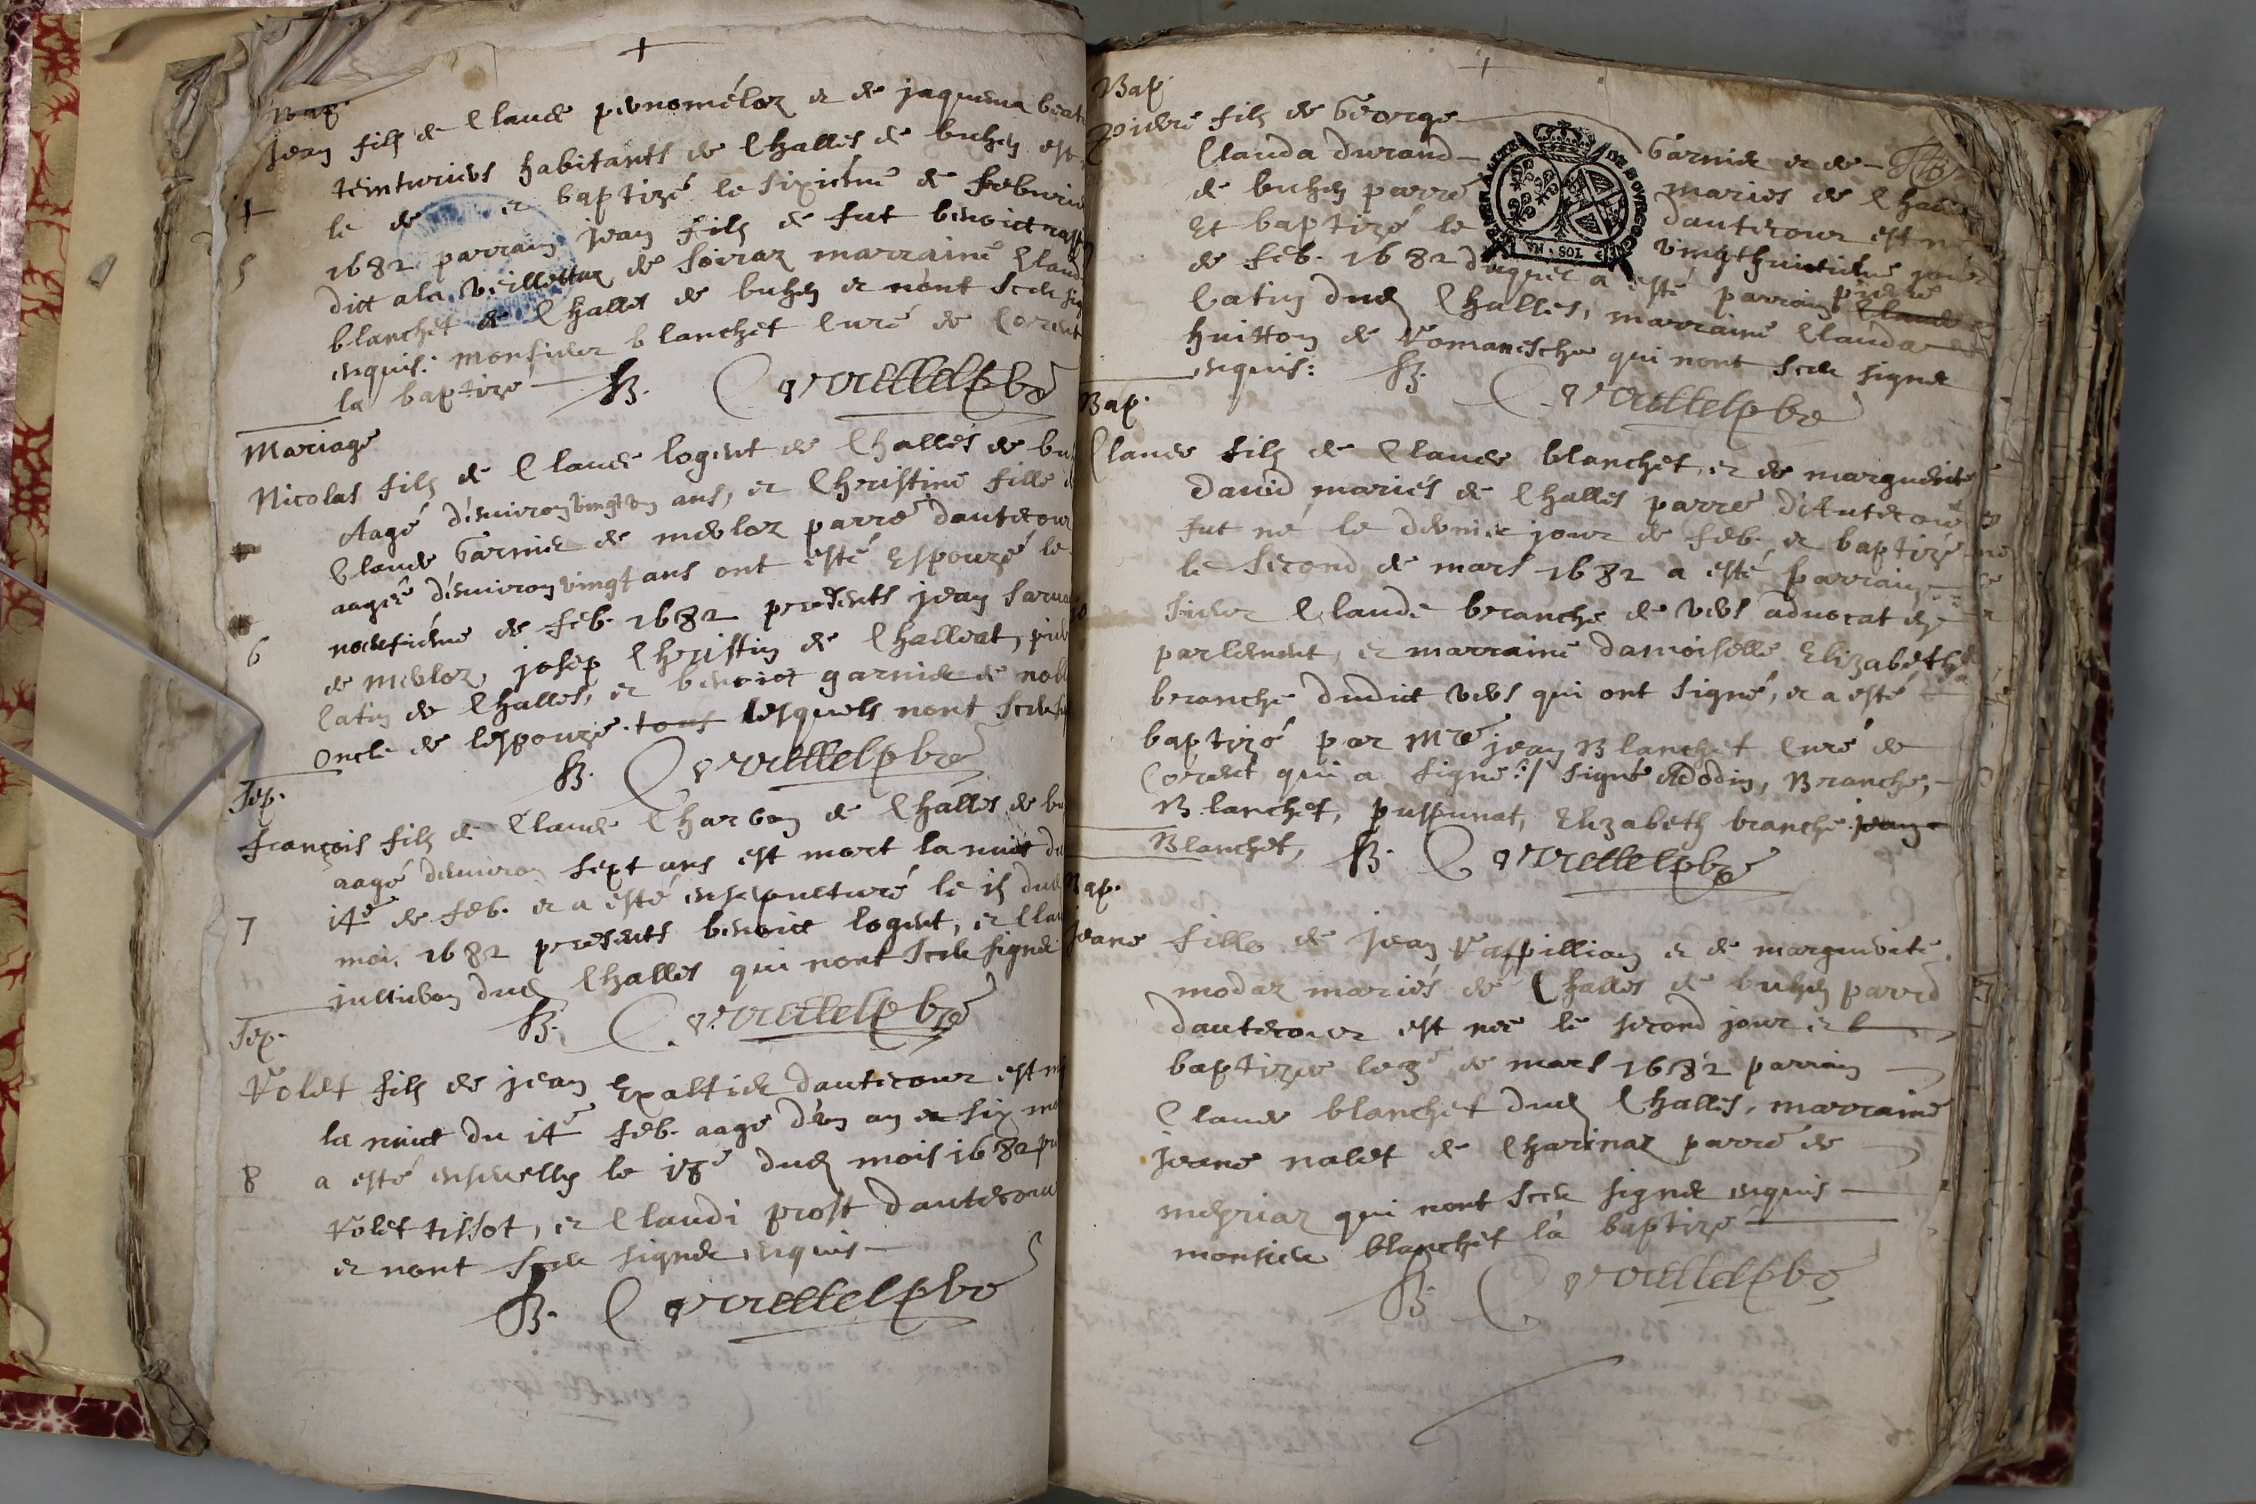 Bap
jean filz de Claude pernoméloz et de jaquema beat
teinturiers habitants de Challes de buhen est
le de et baptizé le sixiéme de febvrie
1682 parrain jean filz de fut benoict
dict a la veillettaz de soiraz marraine Claud
blanchet de Challes de buhen et nont sceu sig
enquis: monsieur blanchet Curé de Corent
la baptizé
5
B.
Mariage
Nicolas filz de Claude logent de Challes de bu
Aagé d'environ vingt un ans, et Christine fille
Claude Garnier de merloz parre dautecour
aagée d'environ vingt ans ont esté Espouzé le
neufiéme de feb. 1682 presents jean
de merloz, josep Christin de Challeat,
Catin de Challes, et benoict garnier de
oncle de lespouze. tous lesquels nont sceu
6
B.
Sep.
françois filz de Claude Charbon de Challes de bu
aagé denviron sept ans est mort la nuit du
14e de feb. et a esté ensepulturé le 15 dud
moi. 1682 presents benoict logent, et Clau
jullieron dud Challes qui nont sceu signer
7
B.
Sep.
Rolet filz de jean Exaltier dautecour est
la nuict du 14e feb. aage d'un an et six mo
a esté ensevelly le 18e dud mois 1682
8
Rolet tissot, et Claudi prost dautecour
et nont sceu signer enquis
B.
Bap
pierre filz de George Garnier et de
Clauda durand mariés de Challes
de buhen parre dautecour est né
Et baptizé le vingthuictiéme jour
de feb. 1682 duquel a esté parrain pierre
Catin dud Challes, marraine Clauda
huitton de Romanesche qui nont sceu signer
enquis:
B.
Bap.
Claude filz de Claude blanchet, et de marguerite
david mariés de Challes parre d'Autecour
fut né le dernier jour de feb. et baptizé
le second de mars 1682 a esté parrain
sieur Claude branche de vers advocat en
parlement, et marraine damoiselle Elizabeth
branche dudict vers qui ont signé, et a esté
baptizé par Mre jean Blanchet Curé de
Corent, qui a signé:/ signé Dodin, Branche,
Blanchet, pussunat, Elizabeth branche jean
Blanchet,
B.
Bap.
jeane fille de jean Raffillion et de marguerite
modaz mariés de Challes de buhen parre
dautecour est née le second jour et
baptizée le 3e de mars 1682 parrain
Claude blanchet dud Challes, marraine
jeane nalet de Charinaz parre de
meyriaz qui nont sceu signer enquis
monsieur blanchet la baptizé
B.